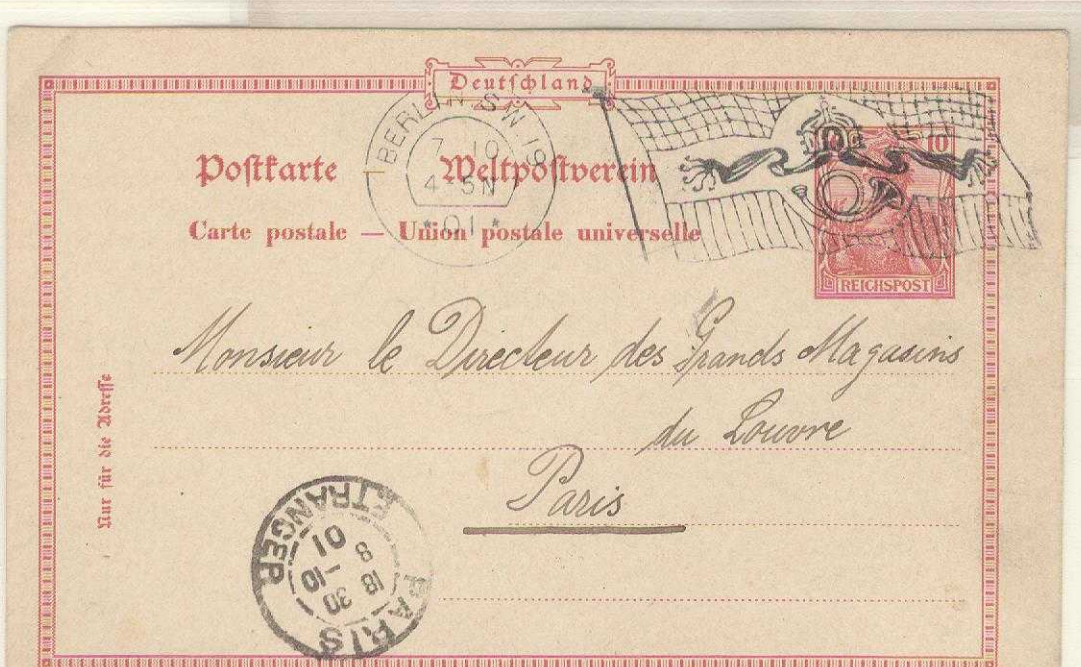 Deutſchland
Poſtkarte Weltpoſtverein
Carte postale — Union postale universelle
BERLIN S.W. 19
7 10
4-5N
* 01 *
10
REICHSPOST
Nur für die Adreſſe
Monsieur le Directeur des Grands Magasins
du Louvre
Paris
PARIS ETRANGER
18 30
8 -10
01